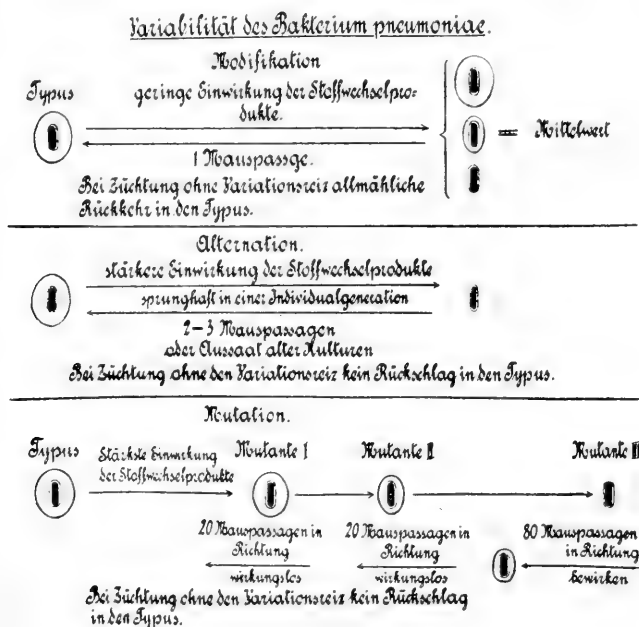 Variabilität des Bakterium pneumoniae.
Modifikation
Typus
geringe Einwirkung der Stoffwechselpro=
dukte.
= Mittelwert
1 Mauspassge.
Bei Züchtung ohne Variationsreiz allmähliche
Rückkehr in den Typus.
Alternation.
stärkere Einwirkung der Stoffwechselprodukte
sprunghaft in einer Individualgeneration
2-3 Mauspassagen
oder Aussaat alter Kulturen
Bei Züchtung ohne den Variationsreiz kein Rückschlag in den Typus.
Mutation.
Typus
Stärkste Einwirkung
der Stoffwechselprodukte
Mutante I
Mutante II
Mutante III
20 Mauspassagen in
Richtung
wirkungslos
20 Mauspassagen in
Richtung
wirkungslos
80 Mauspassagen
in Richtung
bewirken
Bei Züchtung ohne den Variationsreiz kein Rückschlag
in den Typus.